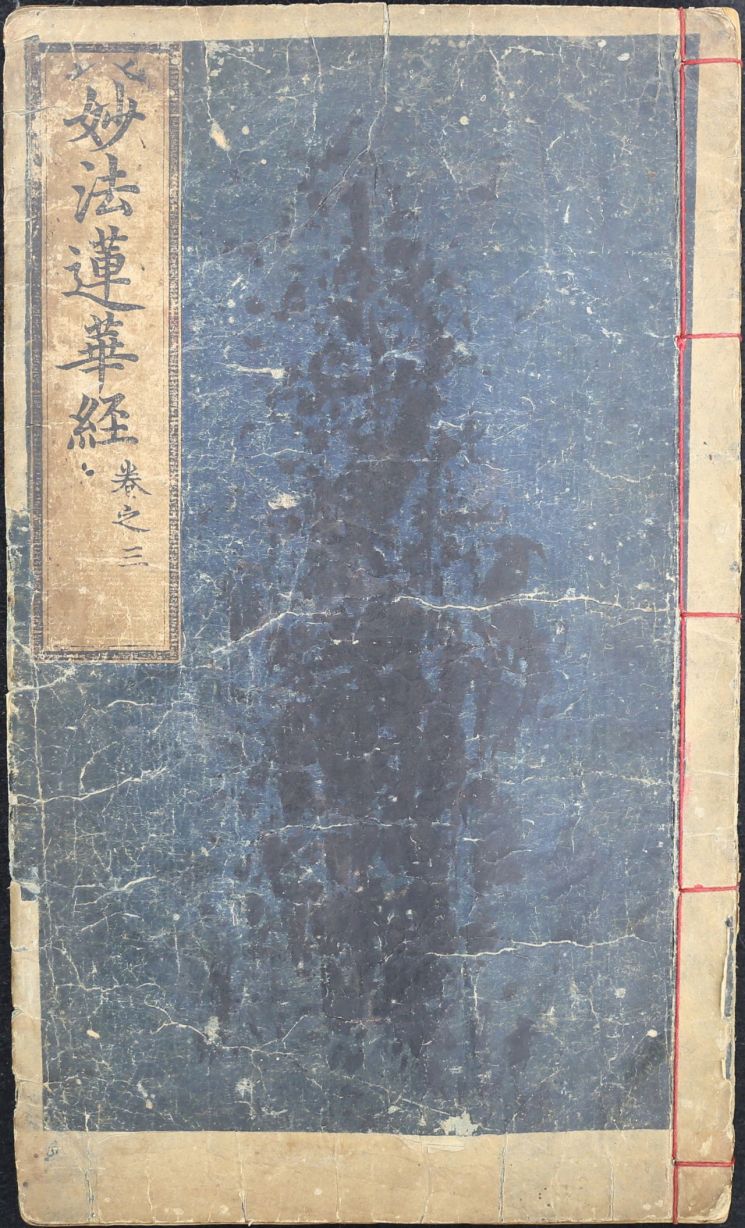 妙法蓮華経
卷之三